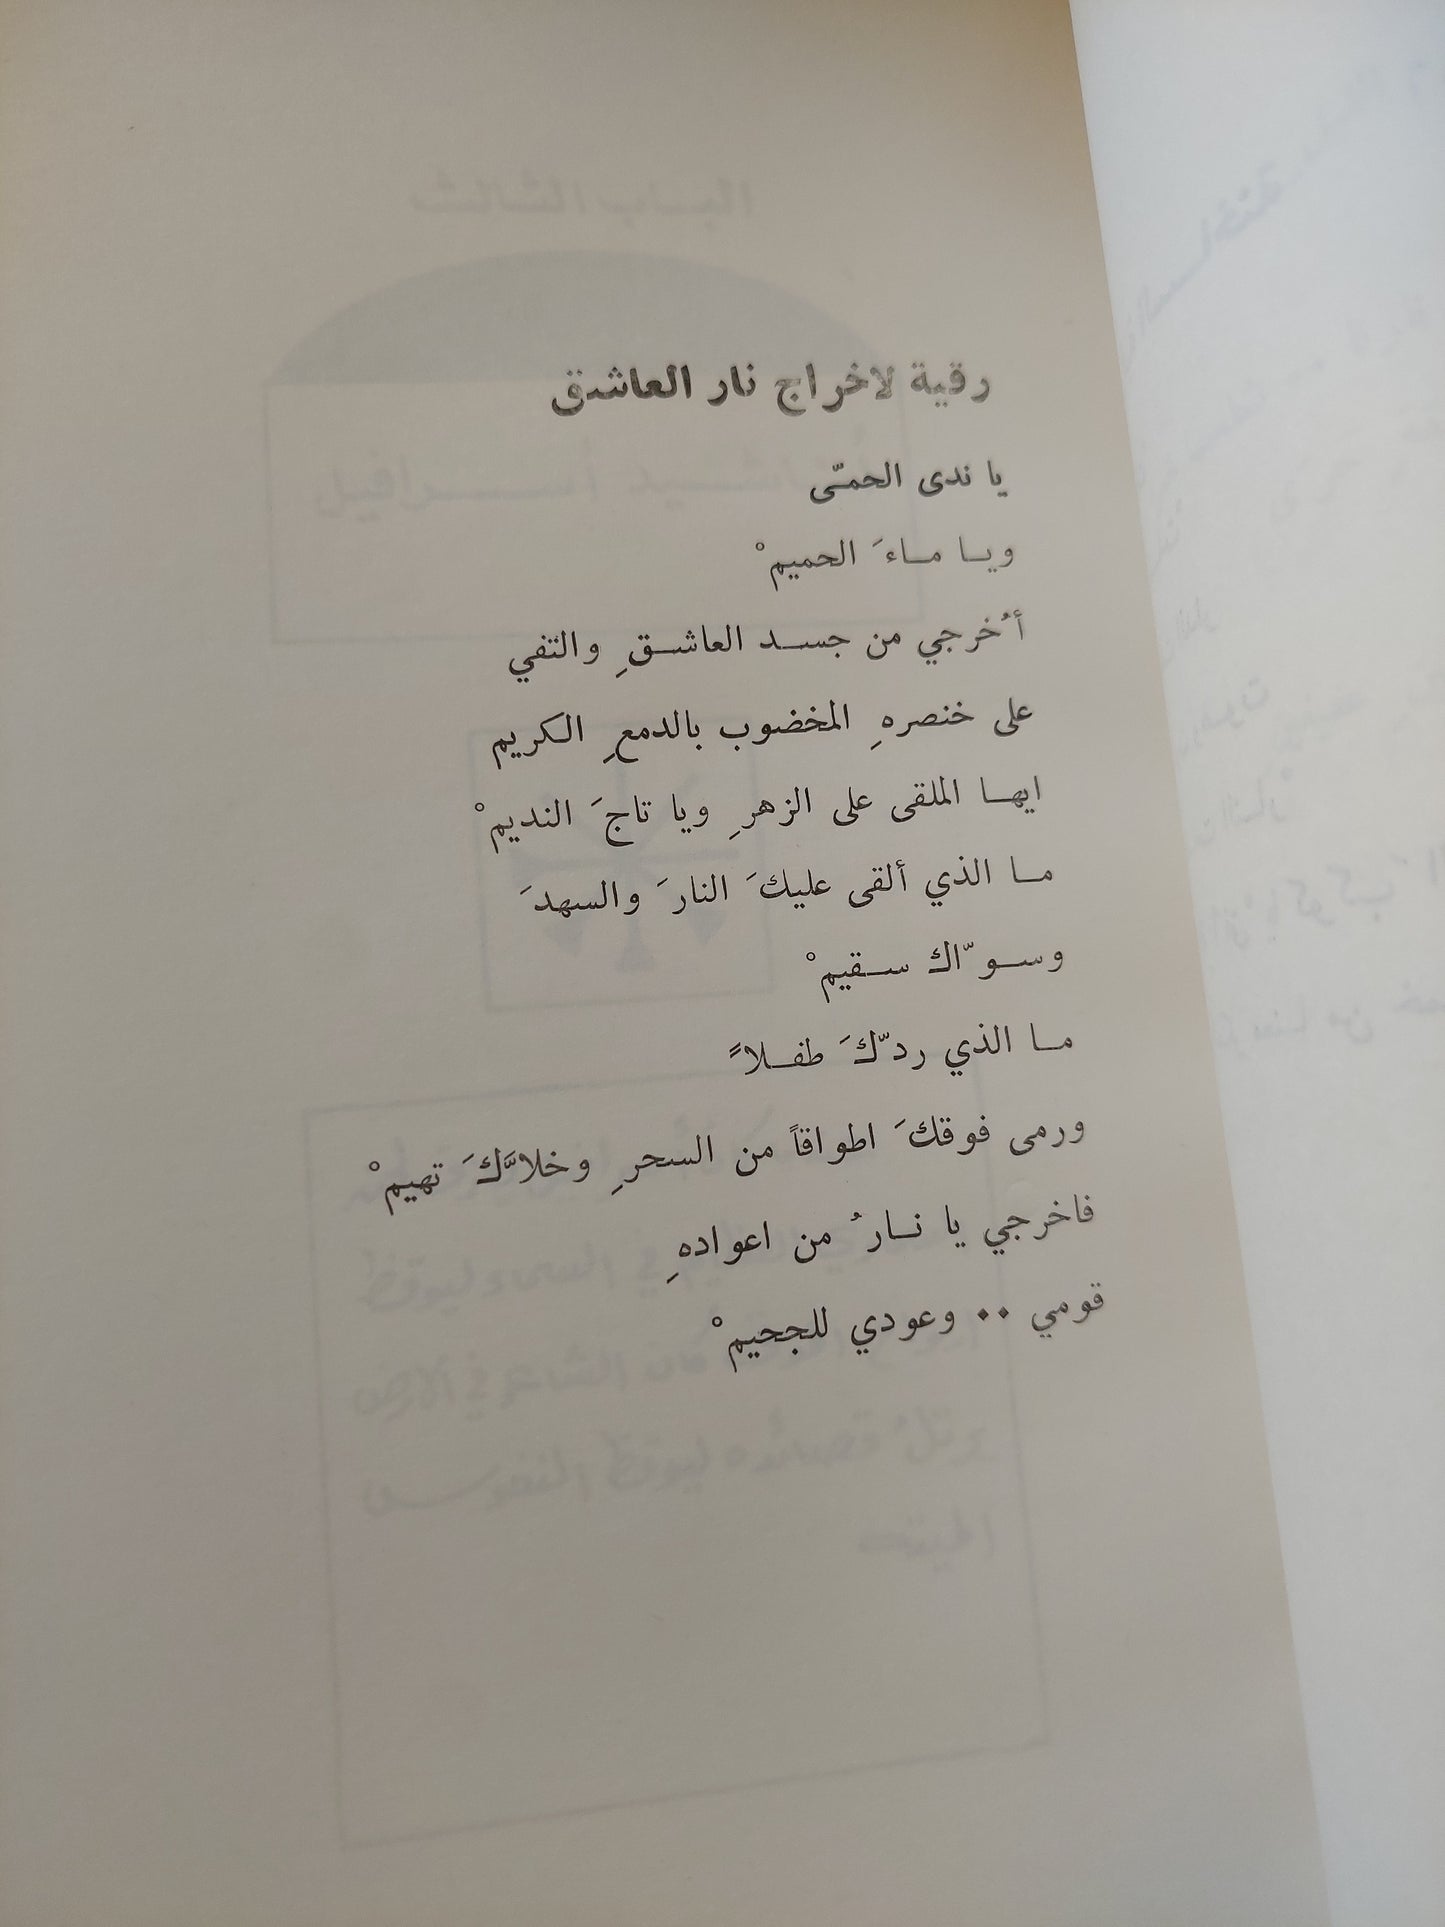 رقية لاخراج نار العاشق
يا ندى الحمّى
ويا ماءَ الحميمْ
أُخرجي من جسد العاشقِ والتفي
على خنصرهِ المخضوب بالدمعِ الكريم
ايها الملقى على الزهرِ ويا تاجَ النديمْ
ما الذي ألقى عليكَ النارَ والسهدَ
وسوّاك سقيمْ
ما الذي ردّكَ طفلاً
ورمى فوقكَ اطواقاً من السحرِ وخلاّكَ تهيمْ
فاخرجي يا نارُ من اعوادهِ
قومي .. وعودي للجحيمْ